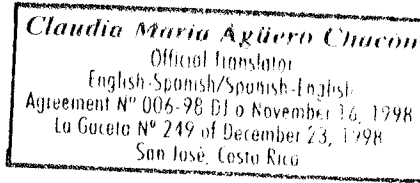 Claudia María Agüero Chacón
Official Translator
English-Spanish/Spanish-English
Agreement Nº 006-98 DJ o November 16, 1998
La Gaceta Nº 249 of December 23, 1998
San José, Costa Rica